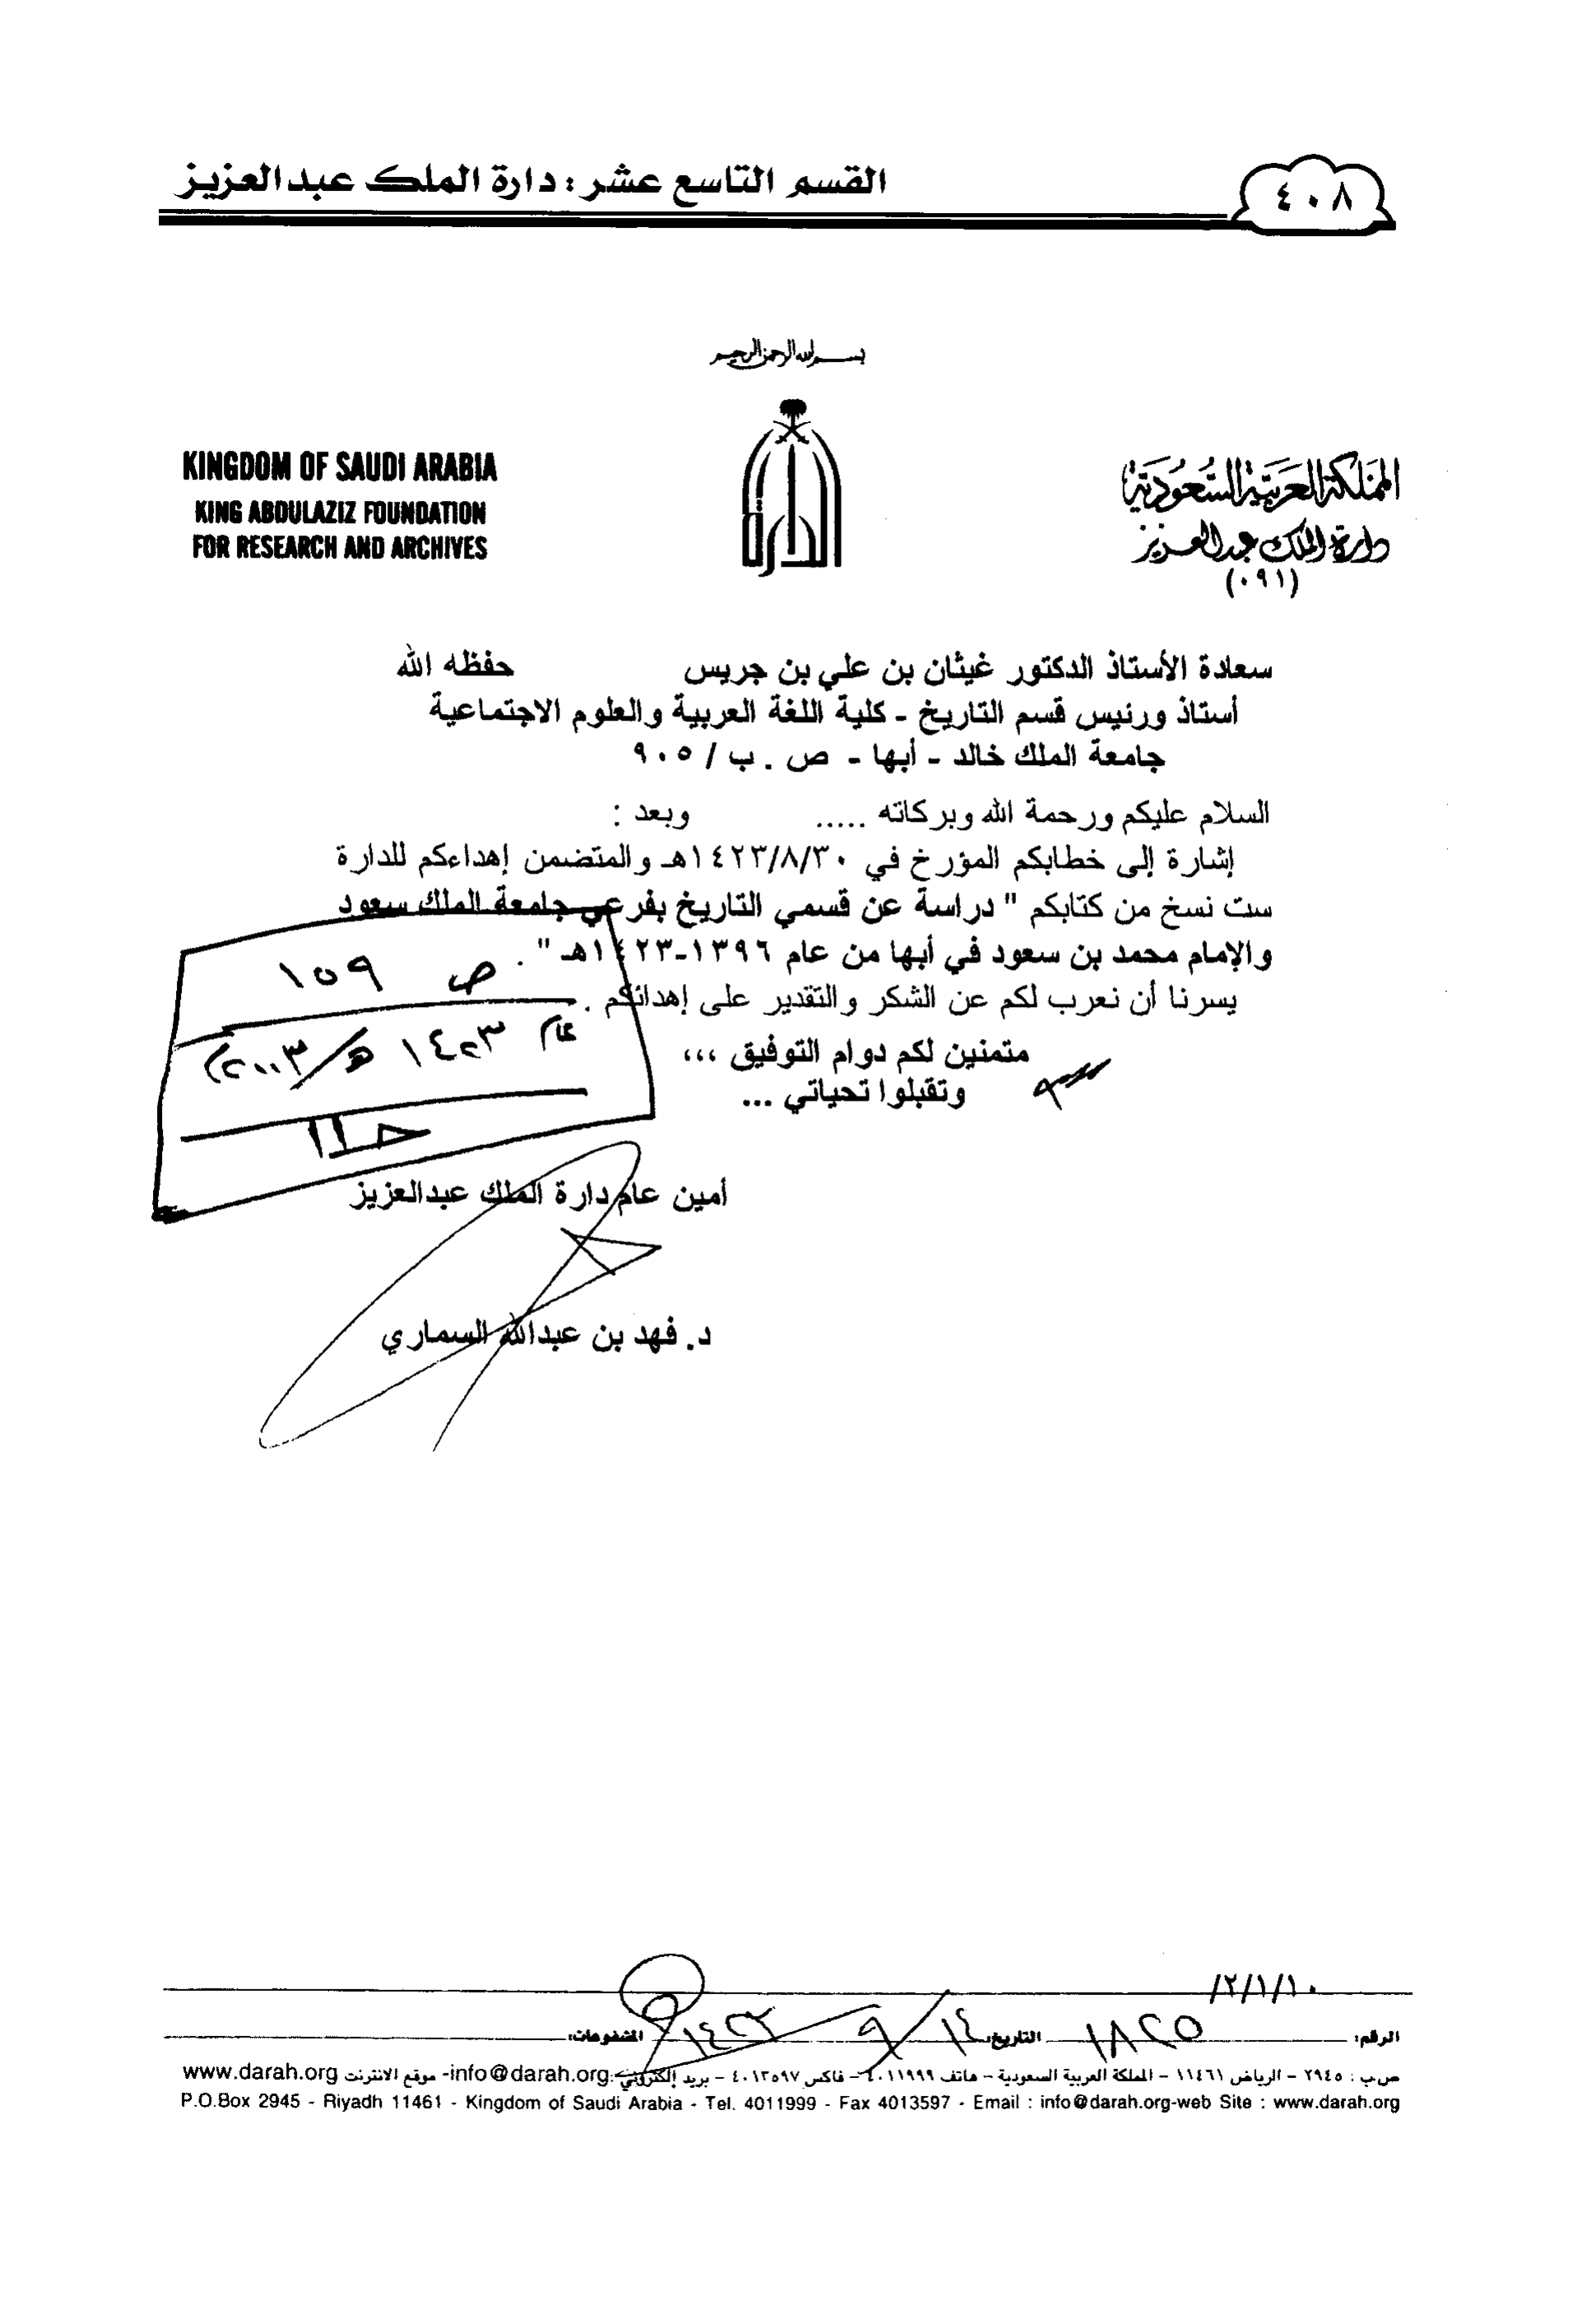 ٤٠٨
القسم التاسع عشر : دارة الملك عبدالعزيز
بسم الله الرحمن الرحيم
المملكة العربية السعودية
دارة الملك عبدالعزيز
(٠٩١)
الدارة
KINGDOM OF SAUDI ARABIA
KING ABDULAZIZ FOUNDATION
FOR RESEARCH AND ARCHIVES
سعادة الأستاذ الدكتور غيثان بن علي بن جريس حفظه الله
أستاذ ورئيس قسم التاريخ - كلية اللغة العربية والعلوم الاجتماعية
جامعة الملك خالد - أبها - ص . ب / ٩٠٥
السلام عليكم ورحمة الله وبركاته ..... وبعد :
إشارة إلى خطابكم المؤرخ في ١٤٢٣/٨/٣٠هـ والمتضمن إهداءكم للدارة
ست نسخ من كتابكم " دراسة عن قسمي التاريخ بفرعي جامعة الملك سعود
والإمام محمد بن سعود في أبها من عام ١٣٩٦-١٤٢٣هـ " .
يسرنا أن نعرب لكم عن الشكر والتقدير على إهدائكم .
متمنين لكم دوام التوفيق ،،،
وتقبلوا تحياتي ...
ص ١٥٩
عام ١٤٢٣هـ/٢٠٠٣م
أمين عام دارة الملك عبدالعزيز
د. فهد بن عبدالله السماري
/٢/١/١٠
الرقم: ١٨٢٥ التاريخ: ١٤/٩/١٤٢٣ المشفوعات:
ص ب : ٢٩٤٥ - الرياض ١١٤٦١ - المملكة العربية السعودية - هاتف ٤٠١١٩٩٩ - فاكس ٤٠١٣٥٩٧ - بريد إلكتروني: info@darah.org- موقع الانترنت www.darah.org
P.O.Box 2945 - Riyadh 11461 - Kingdom of Saudi Arabia - Tel. 4011999 - Fax 4013597 - Email : info@darah.org-web Site : www.darah.org